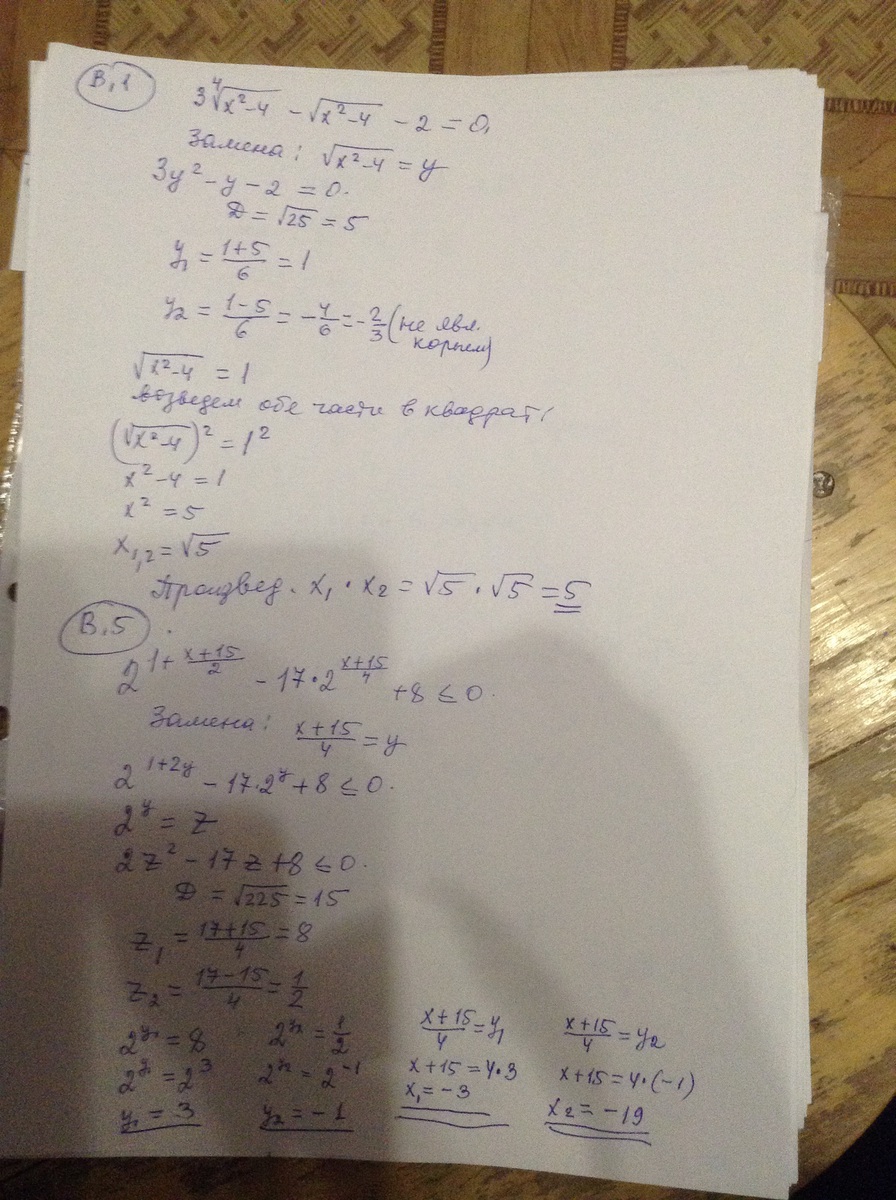 В.1
3⁴√x²-4 - √x²-4 - 2 = 0,
Замена: √x²-4 = y
3y² - y - 2 = 0.
D = √25 = 5
y₁ = (1+5)/6 = 1
y₂ = (1-5)/6 = -4/6 = -2/3 (не явл. корнем)
√x²-4 = 1
возведем обе части в квадрат
(√x²-4)² = 1²
x²-4 = 1
x² = 5
x₁,₂ = √5
Произвед. x₁ · x₂ = √5 · √5 = 5
В.5
2^(1+(x+15)/2) - 17·2^((x+15)/4) + 8 ≤ 0.
Замена: (x+15)/4 = y
2^(1+2y) - 17·2^y + 8 ≤ 0.
2^y = z
2z² - 17z + 8 ≤ 0.
D = √225 = 15
z₁ = (17+15)/4 = 8
z₂ = (17-15)/4 = 1/2
2^y₁ = 8 2^y₂ = 1/2 (x+15)/4 = y₁ (x+15)/4 = y₂
2^y₁ = 2³ 2^y₂ = 2⁻¹ x+15 = 4·3 x+15 = 4·(-1)
y₁ = 3 y₂ = -1 x₁ = -3 x₂ = -19